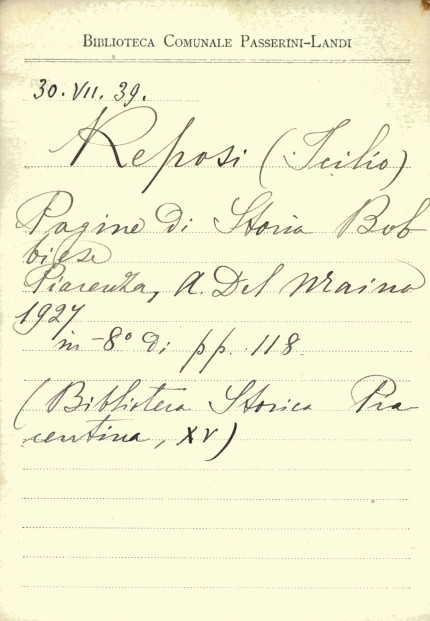 BIBLIOTECA COMUNALE PASSERINI-LANDI
30. VII. 39.
Reposi (Icilio)
Pagine di Storia Bob
biese
Piacenza, A. Del Maino
1927
in-8° di pp. 118
(Biblioteca Storica Pia
centina, XV)